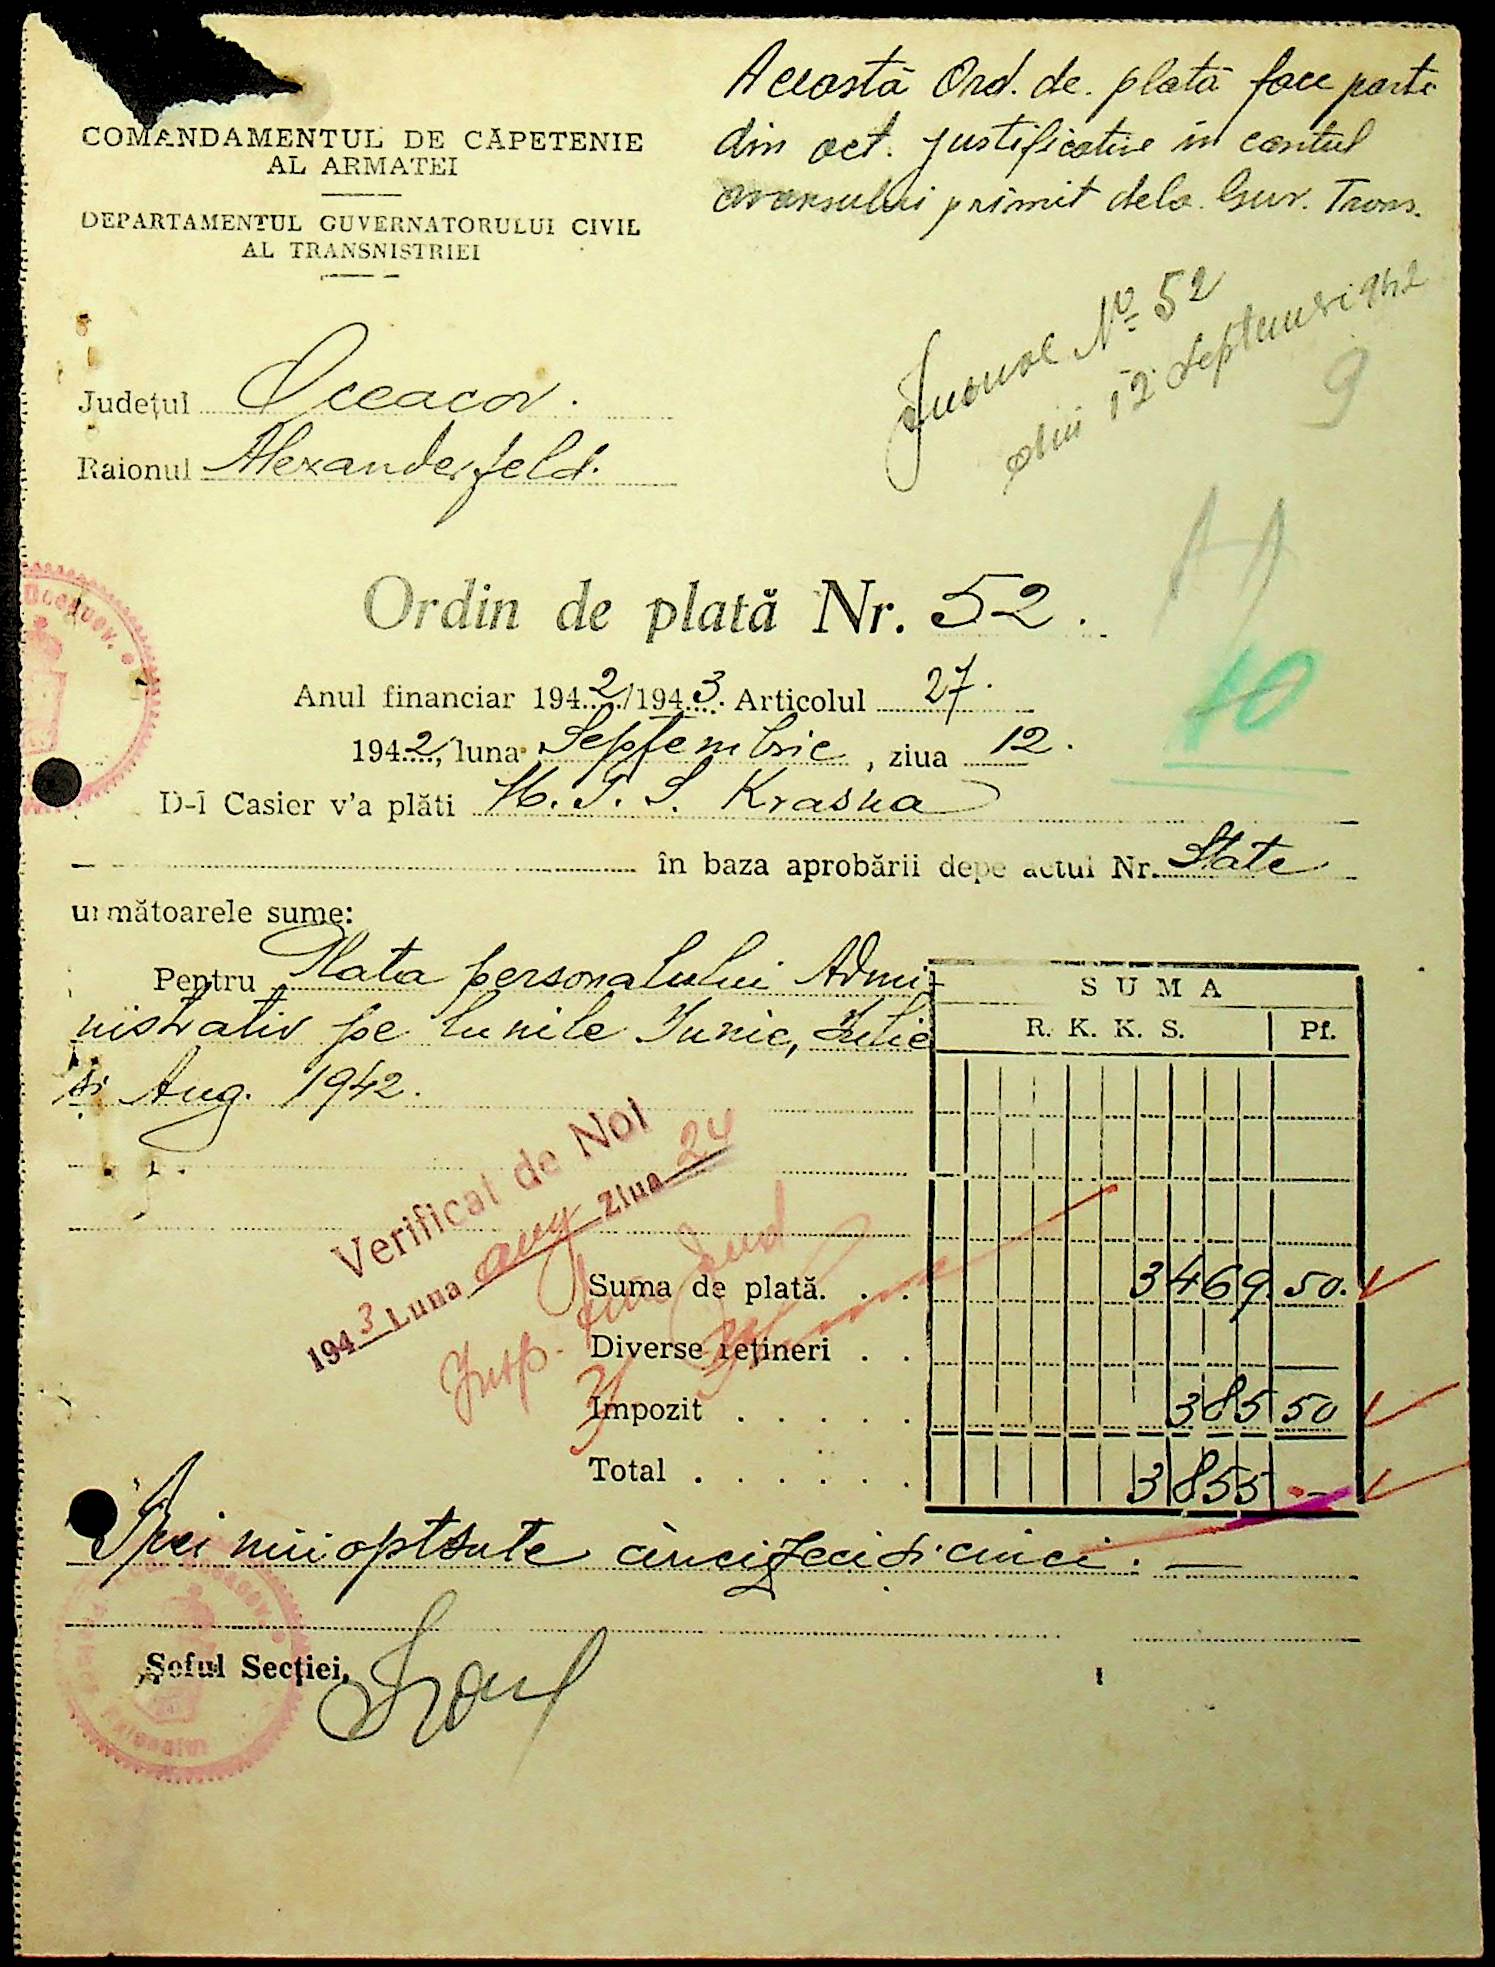 Această Ord. de. plată face parte
din act. justificative în contul
avansului primit dela Guv. Trans.
COMANDAMENTUL DE CĂPETENIE
AL ARMATEI
DEPARTAMENTUL GUVERNATORULUI CIVIL
AL TRANSNISTRIEI
Jurnal No 52
din 12 Septemvrie 942
9
Județul Oceacov.
Raionul Alexanderfeld.
Ordin de plată Nr. 52.
10
Anul financiar 1942/1943. Articolul 27.
1942, luna Septembrie, ziua 12.
D-l Casier v'a plăti M. T. S. Krasna
în baza aprobării depe actul Nr. State
următoarele sume:
Pentru Plata personalului Admi-
nistrativ pe lunile Iunie, Iulie
și Aug. 1942.
SUMA
R. K. K. S. Pf.
Verificat de Noi
1943 Luna aug Ziua 24
Insp.
Suma de plată. . . 3469. 50.
Diverse rețineri . . —
Impozit . . . . . 385 50
Total . . . . . . 3855 -—
Trei mii optsute cincizeci și cinci. —
Șeful Secției,